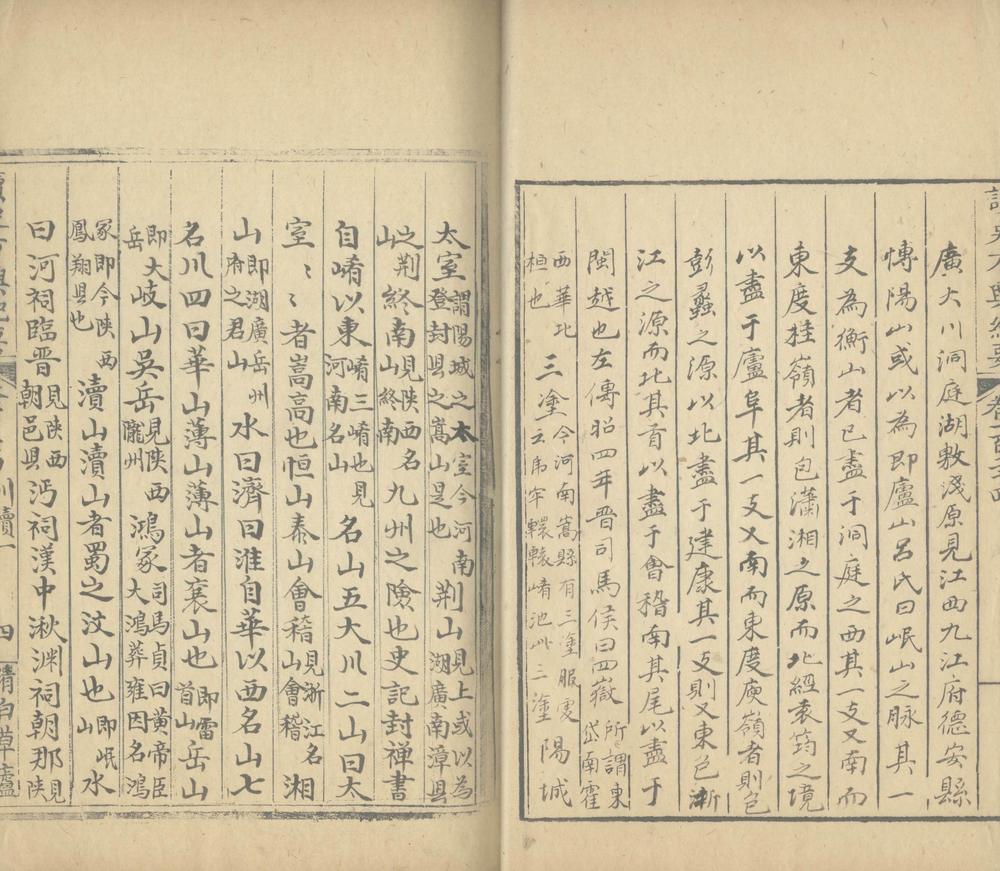 廣大川洞庭湖敷淺原見江西九江府德安縣
慱陽山或以為即廬山呂氏曰岷山之脉其一
支為衡山者已盡于洞庭之西其一支又南而
東度桂嶺者則包瀟湘之原而北經袁筠之境
以盡于廬阜其一支又南而東度庾嶺者則包
彭蠡之源以北盡于建康其一支則又東包浙
江之源而北其首以盡于會稽南其尾以盡于
閩越也左傳昭四年晋司馬侯曰四嶽所謂東岱南霍
西華北桓也三塗今河南嵩縣有三塗服虔云轘轅崤池此三塗陽城
太室謂陽城之太室今河南登封县之嵩山是也荆山見上或以為湖廣南漳县
之荆山終南見陕西名山終南九州之險也史記封禅書
自崤以東崤三崤也見河南名山名山五大川二山曰太
室〻〻者嵩高也恒山泰山會稽見浙江名山會稽湘
山即湖廣岳州府之君山水曰濟曰淮自華以西名山七
名川四曰華山薄山薄山者襄山也即雷首山岳山
即大岐山吳岳見陕西隴州鴻冢司馬貞曰黄帝臣大鴻葬雍因名鴻
岳
冢即今陕西鳳翔县也瀆山瀆山者蜀之汶山也即岷山水
曰河祠臨晋見陕西朝邑县沔祠漢中湫渊祠朝那見陕
四